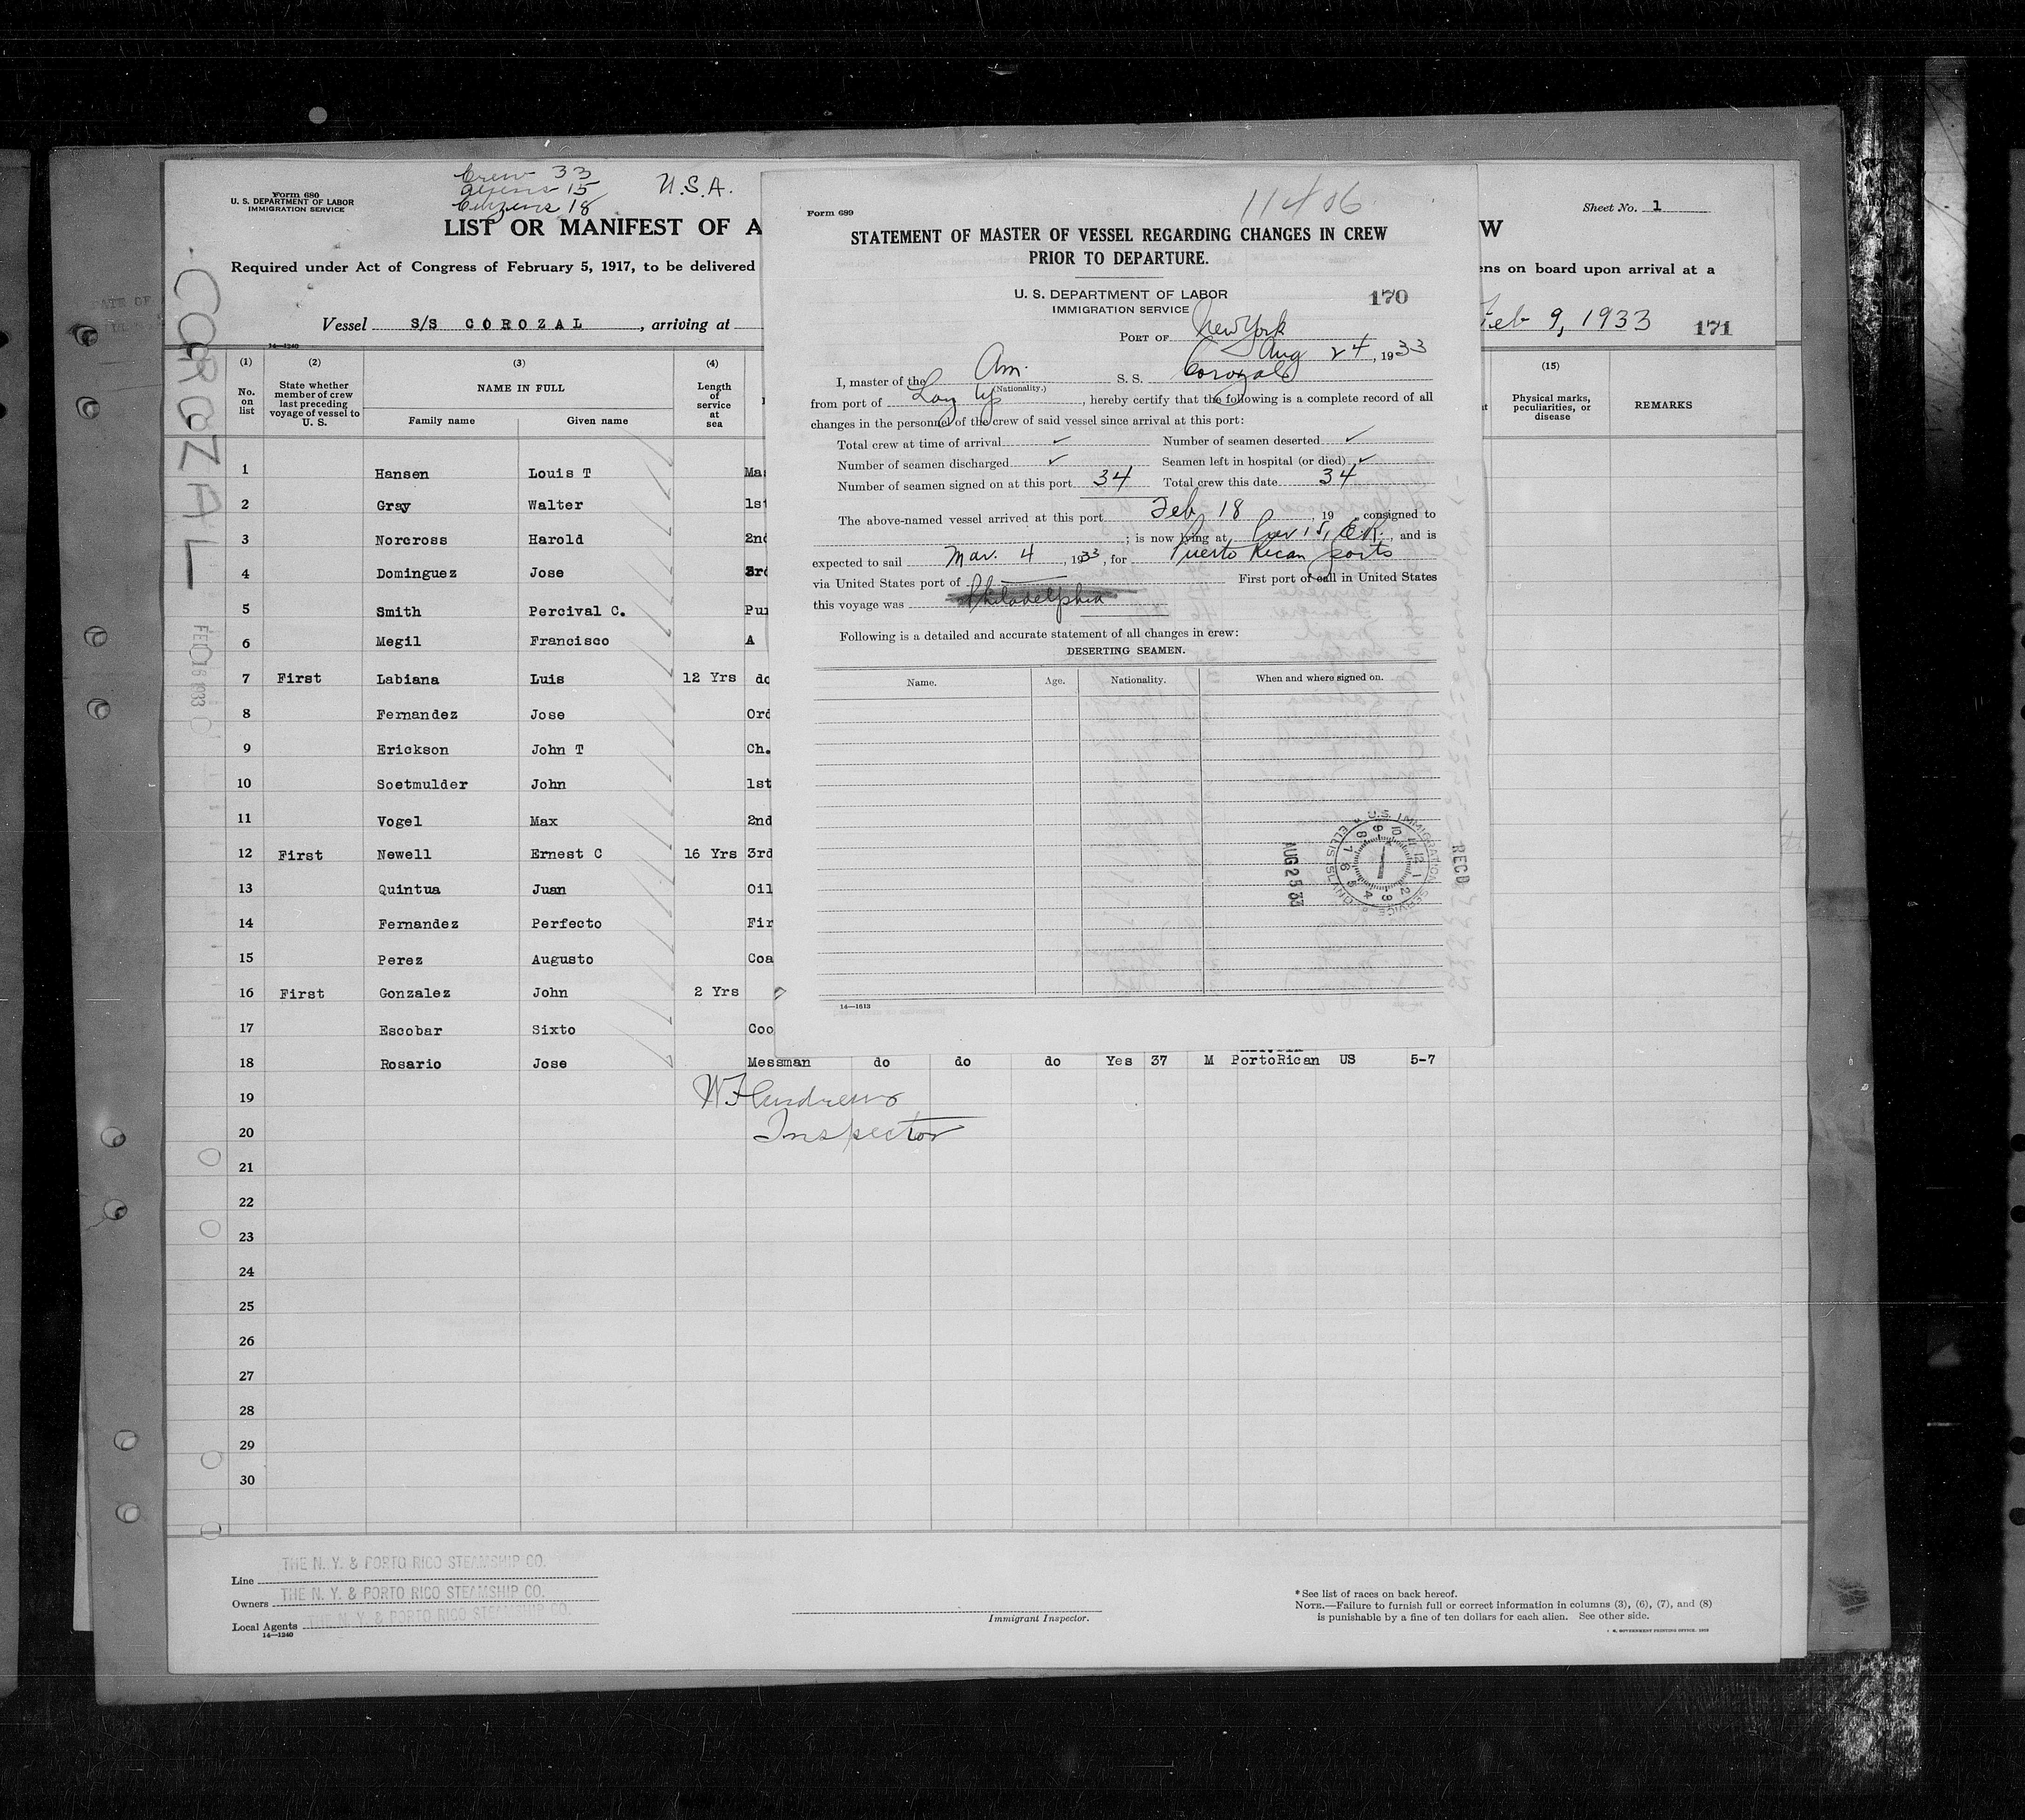 Crew 33
Aliens 15
Citizens 18
U.S.A.
Form 680
U. S. DEPARTMENT OF LABOR
IMMIGRATION SERVICE
LIST OR MANIFEST OF A
W
Sheet No. 1
Required under Act of Congress of February 5, 1917, to be delivered
ens on board upon arrival at a
Vessel S/S COROZAL, arriving at
Feb 9, 1933 171
14—1240
COROZAL
FEB 16 1933
(1) (2) (3) (4) (15)
No. on list
State whether member of crew last preceding voyage of vessel to U. S.
NAME IN FULL
Family name Given name
Length of service at sea
Physical marks, peculiarities, or disease
REMARKS
1 Hansen Louis T Mas
2 Gray Walter 1st
3 Norcross Harold 2nd
4 Dominguez Jose 3rd
5 Smith Percival C. Pur
6 Megil Francisco A
7 First Labiana Luis 12 Yrs do
8 Fernandez Jose Ord
9 Erickson John T Ch.
10 Soetmulder John 1st
11 Vogel Max 2nd
12 First Newell Ernest C 16 Yrs 3rd
13 Quintua Juan Oil
14 Fernandez Perfecto Fir
15 Perez Augusto Coa
16 First Gonzalez John 2 Yrs
17 Escobar Sixto Coo
18 Rosario Jose Messman do do do Yes 37 M PortoRican US 5-7
19
20
21
22
23
24
25
26
27
28
29
30
W F Andrews
Inspector
Line THE N. Y. & PORTO RICO STEAMSHIP CO.
Owners THE N. Y. & PORTO RICO STEAMSHIP CO.
Local Agents THE N. Y. & PORTO RICO STEAMSHIP CO.
14—1240
Immigrant Inspector.
* See list of races on back hereof.
NOTE.—Failure to furnish full or correct information in columns (3), (6), (7), and (8)
is punishable by a fine of ten dollars for each alien. See other side.
U. S. GOVERNMENT PRINTING OFFICE
Form 689
11406
STATEMENT OF MASTER OF VESSEL REGARDING CHANGES IN CREW
PRIOR TO DEPARTURE.
U. S. DEPARTMENT OF LABOR
IMMIGRATION SERVICE
170
PORT OF New York
Aug 24, 1933
I, master of the Am. S. S. Corozal
(Nationality.)
from port of Lay Up, hereby certify that the following is a complete record of all
changes in the personnel of the crew of said vessel since arrival at this port:
Total crew at time of arrival ✓ Number of seamen deserted ✓
Number of seamen discharged ✓ Seamen left in hospital (or died) ✓
Number of seamen signed on at this port 34 Total crew this date 34
The above-named vessel arrived at this port Feb 18, 19 , consigned to
; is now lying at Pier 15, E.R., and is
expected to sail Mar. 4, 1933, for Puerto Rican ports
via United States port of First port of call in United States
this voyage was Philadelphia
Following is a detailed and accurate statement of all changes in crew:
DESERTING SEAMEN.
Name. Age. Nationality. When and where signed on.
RECD
U.S. IMMIGRATION SERVICE
ELLIS ISLAND
1 2 3 4 5 6 7 8 9 10 11 12
AUG 25 33
14—1613